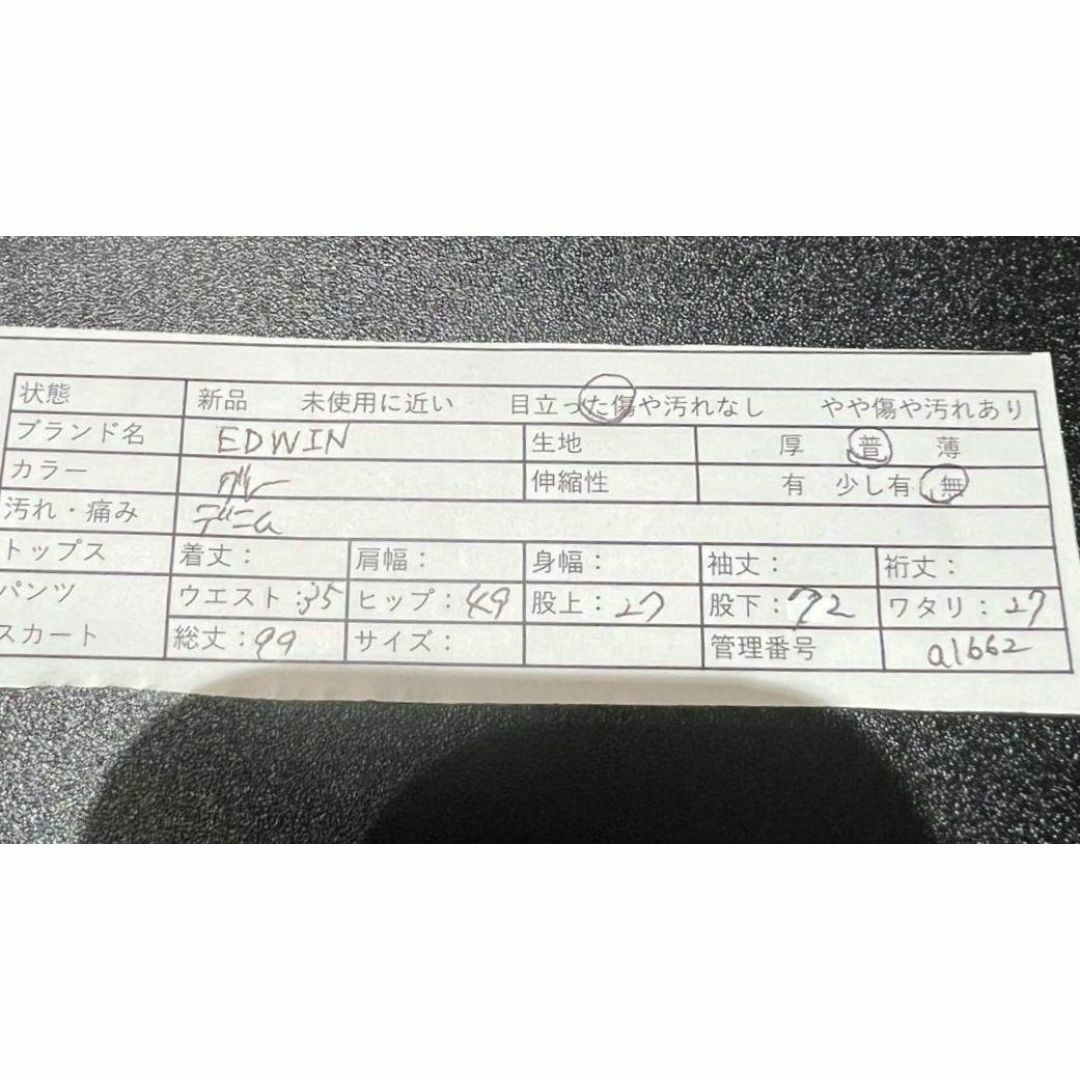 状態 新品 未使用に近い 目立った傷や汚れなし やや傷や汚れあり
ブランド名 EDWIN 生地 厚 普 薄
カラー グレー 伸縮性 有 少し有 無
汚れ・痛み デニム
トップス 着丈: 肩幅: 身幅: 袖丈: 裄丈:
パンツ ウエスト:35 ヒップ:49 股上:27 股下:72 ワタリ:27
スカート 総丈:99 サイズ: 管理番号 a1662